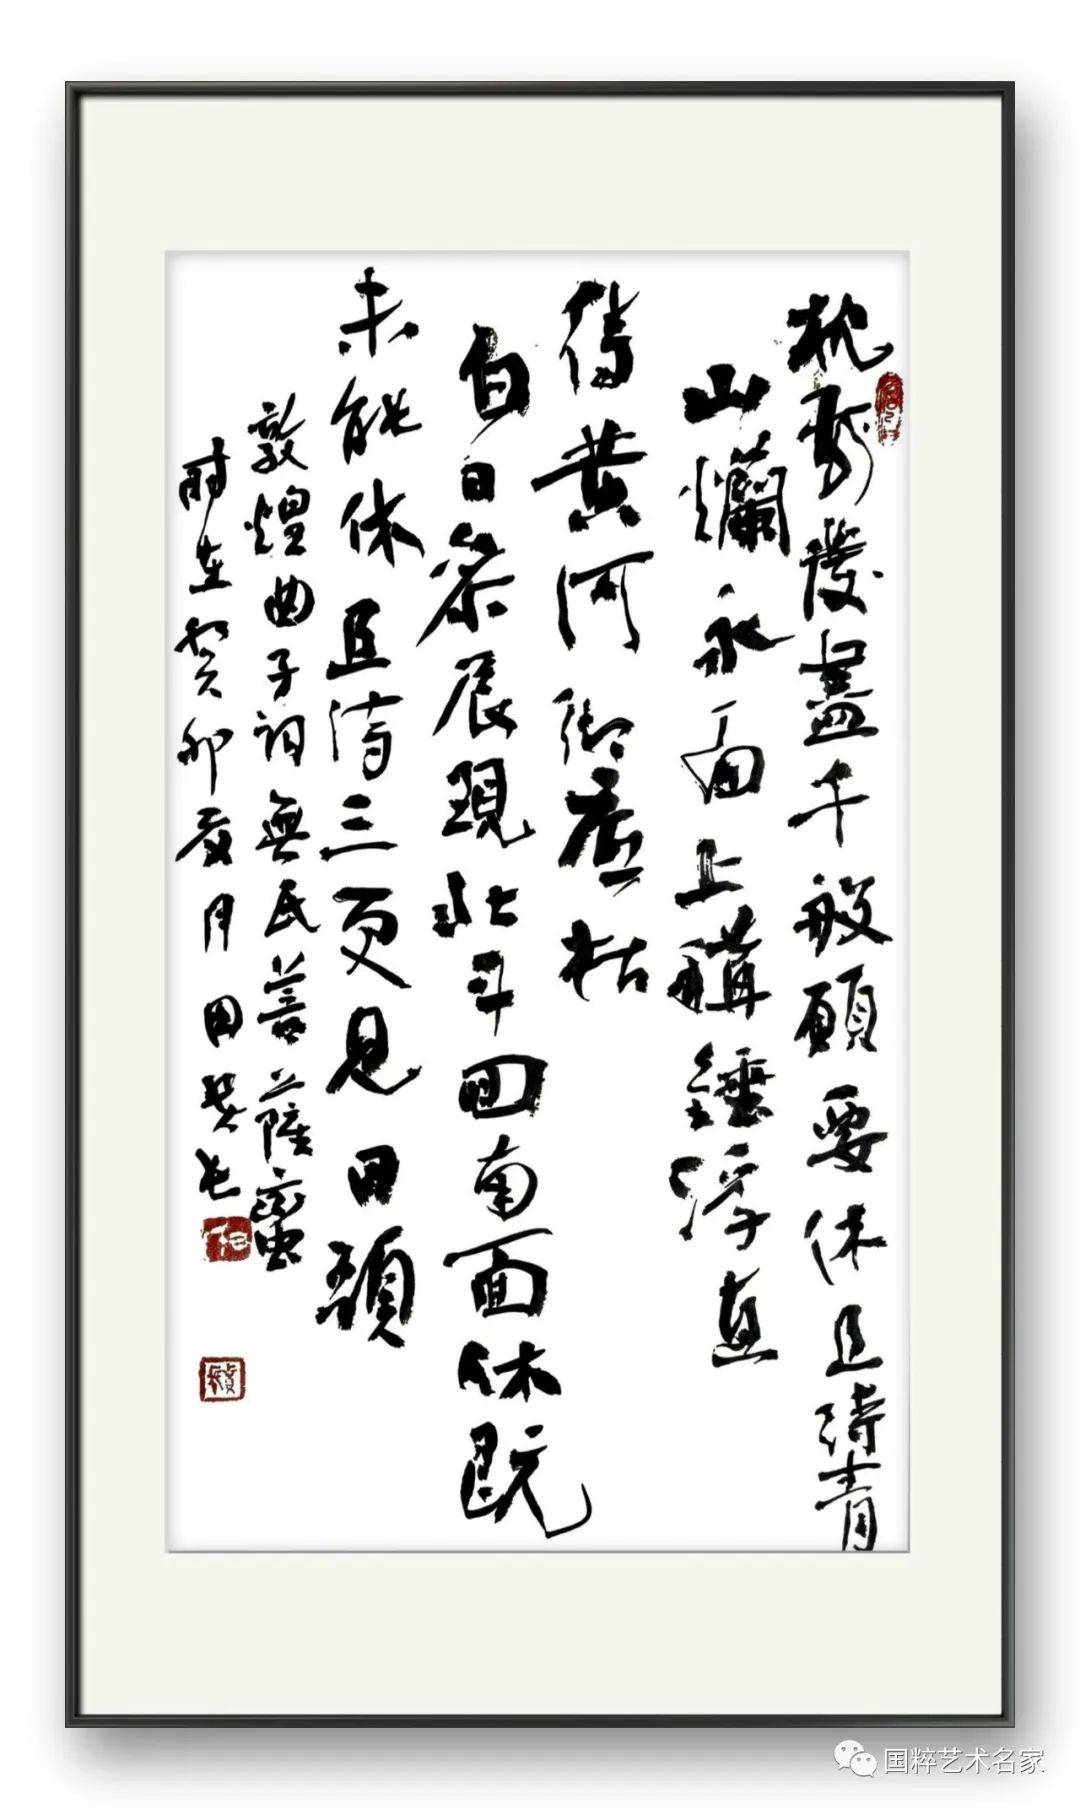 枕前發盡千般願要休且待青
山爛水面上稱錘浮直
待黄河徹底枯
白日參辰現北斗回南面休既
未能休且待三更見日頭
敦煌曲子詞無民菩薩蠻
時在癸卯夏月田
国粹艺术名家